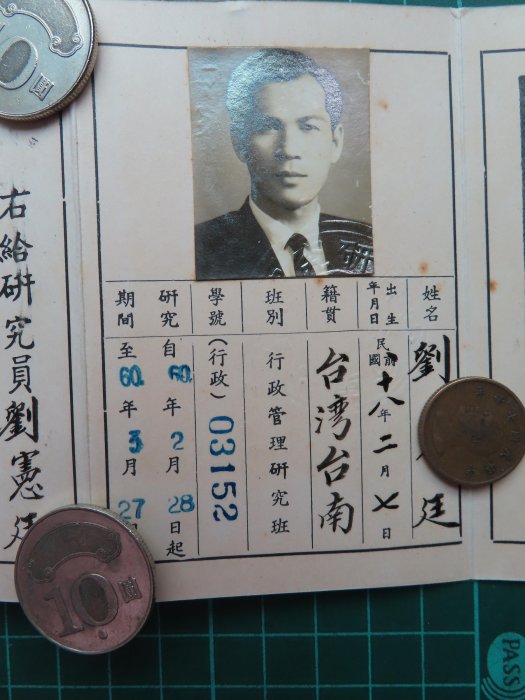 姓名 劉 廷
出生年月日 民國前十八年二月七日
籍貫 台湾台南
班別 行政管理研究班
學號 (行政) 03152
研究 自60.年2月28日起
期間 至60.年3月27
右給研究員劉憲廷
10 圓
10 圓
PASS